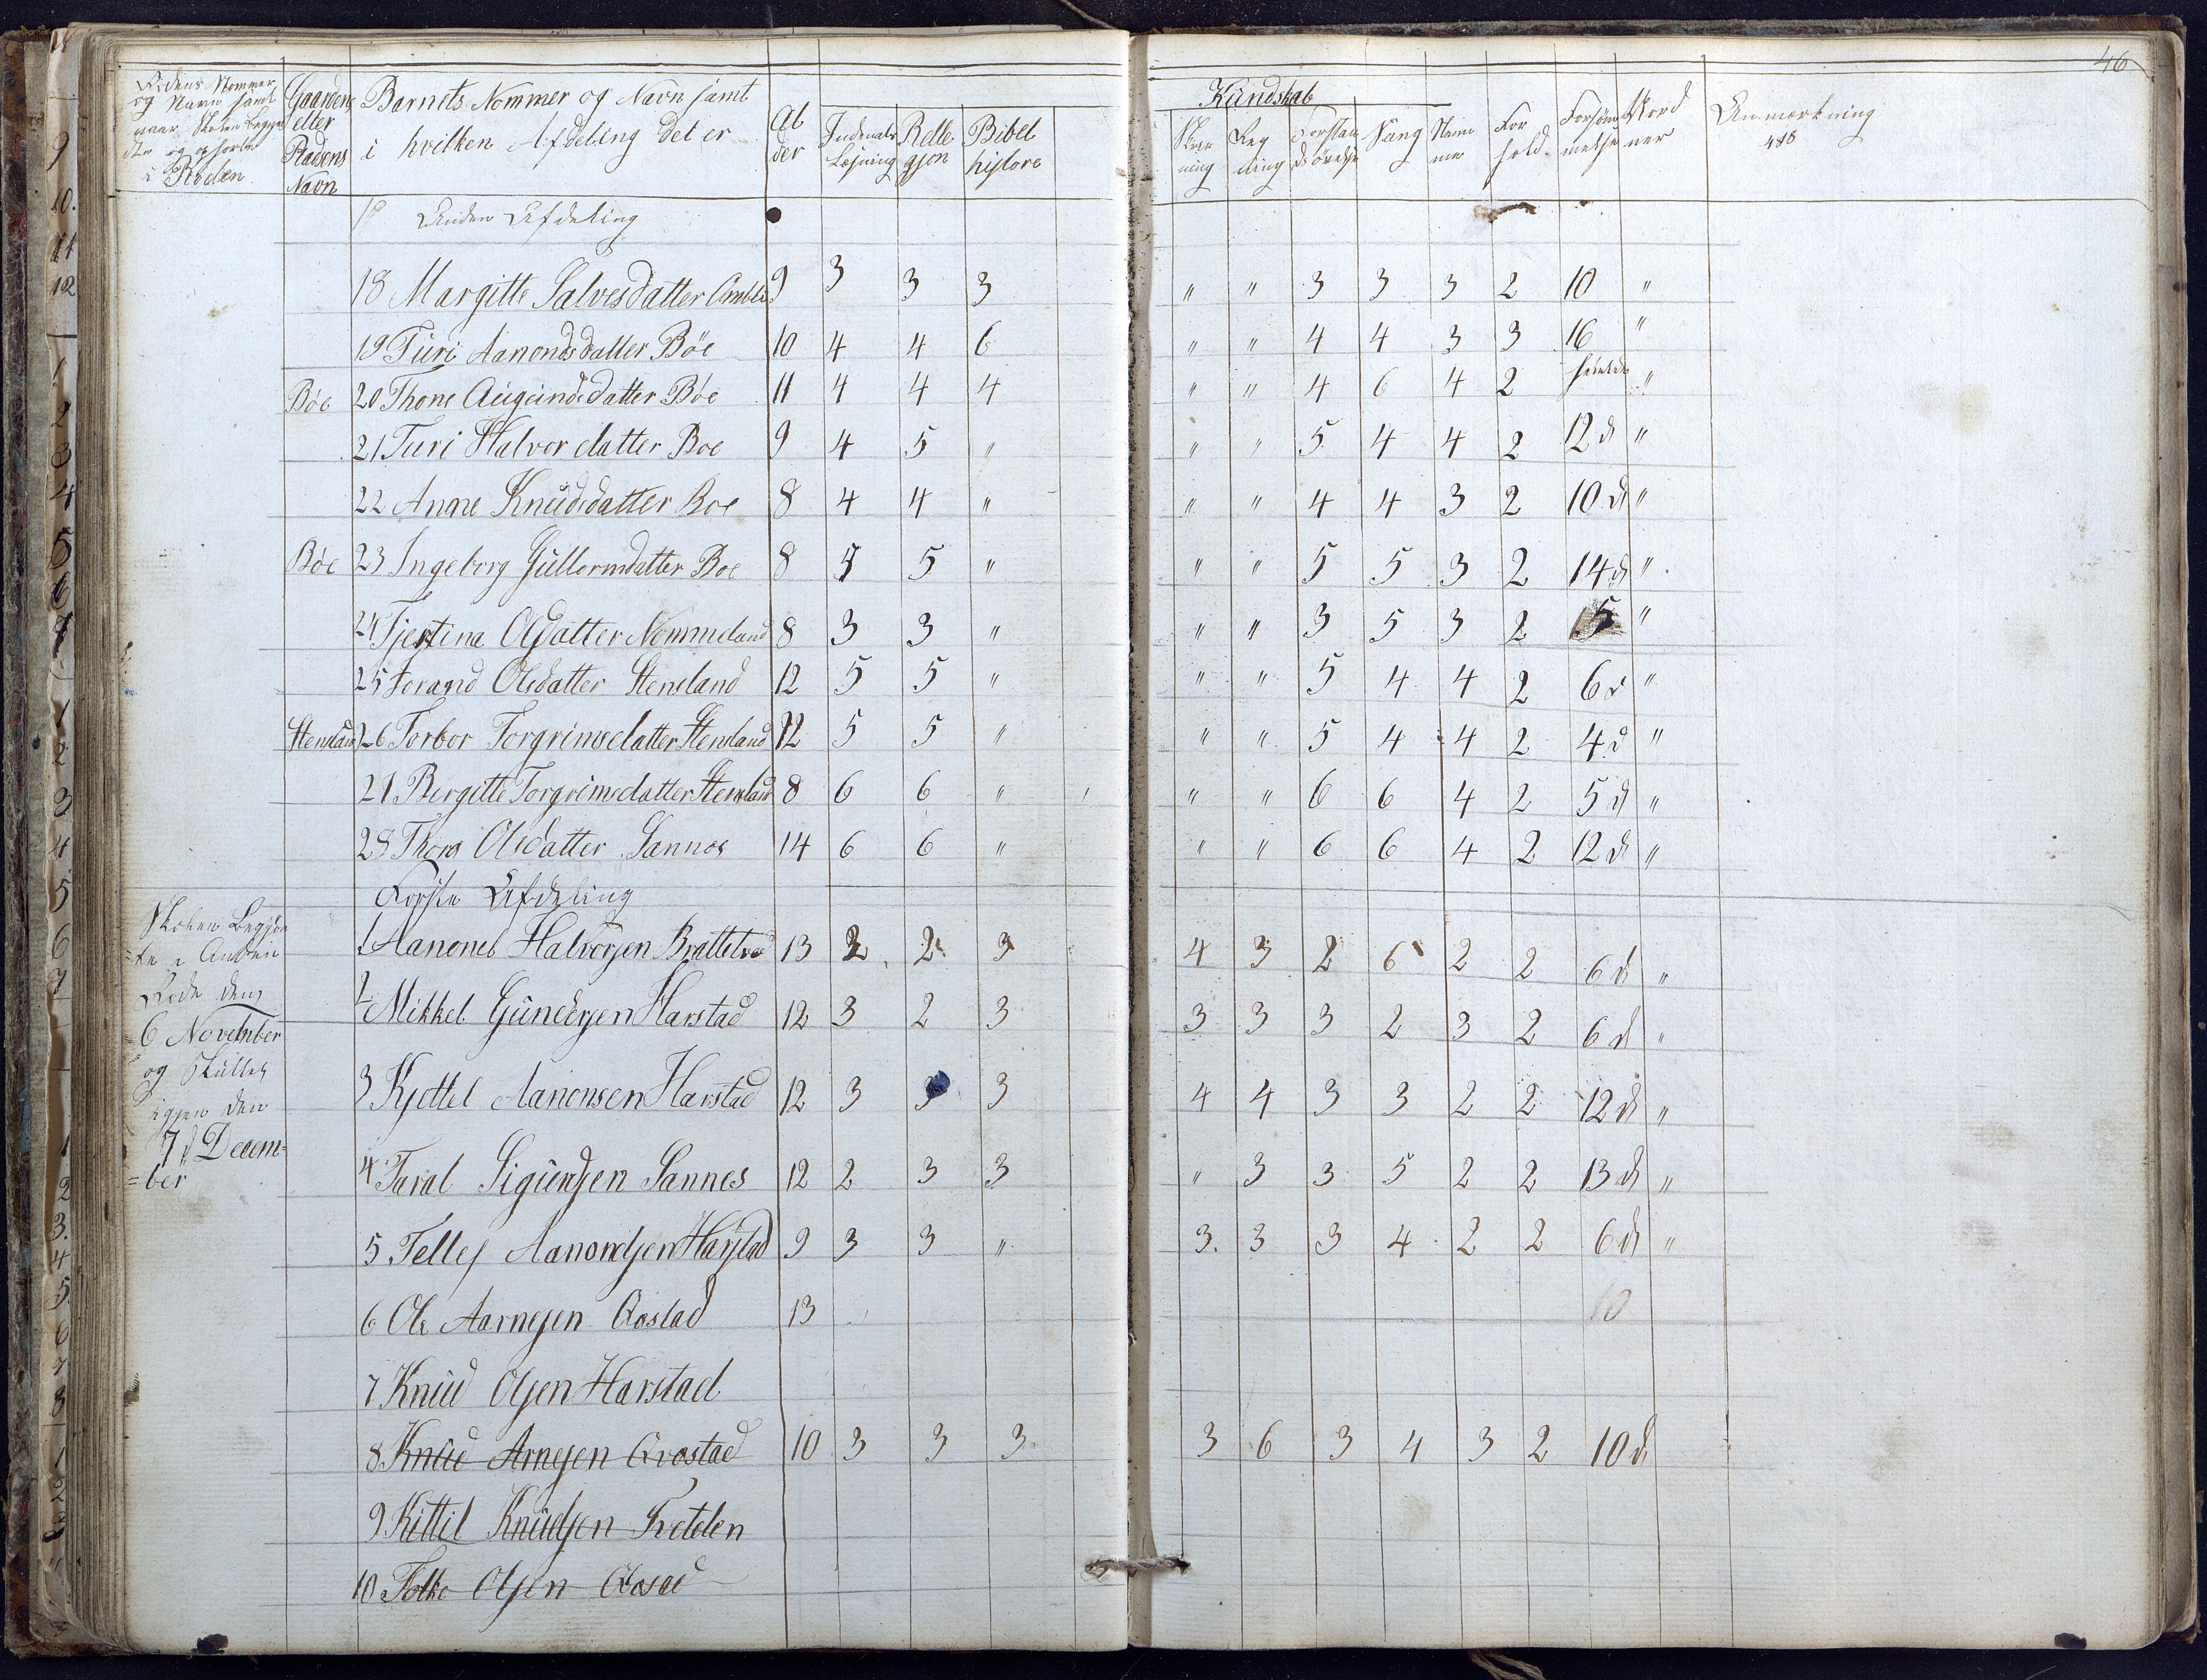 46
Rodens Nommer og Navn samt naar Skolen begyndte og ophorte i Roden
Gaardens eller Pladens Navn
Barnets Nommer og Navn samt i hvilken Afdeling det er
Alder
Indenads Læsning
Relle gjon
Bibel histore
Kundskab
Skrivning
Regning
Forstands øvelse
Sang
Nemme
For hold
Forsømmelse
Nord ner
Anmærkning
Anden Afdeling
18 Margitte Salvesdatter 9 3 3 3 " " 3 3 3 2 10 "
19 Turi Aanondsdatter Böe 10 4 4 6 " " 4 4 3 3 16 "
Böe 20 Thone Augundsdatter Böe 11 4 4 4 " " 4 6 4 2 "
21 Turi Halvordatter Boe 9 4 5 " " " 5 4 4 2 12 d "
22 Anne Knudsdatter Boe 8 4 4 " " " 4 4 3 2 10 d "
Böe 23 Ingeborg Gullormdatter Boe 8 5 5 " " " 5 5 3 2 14 d "
24 Tjestina Olsdatter Nommeland 8 3 3 " " " 3 5 3 2 15 "
25 Torand Olsdatter Stensland 12 5 5 " " " 5 4 4 2 6 d "
Stensland 26 Torbor Torgrimsdatter Stensland 12 5 5 " " " 5 4 4 2 4 d "
27 Bergitte Torgrimsdatter Stensland 8 6 6 " " " 6 6 4 2 5 d "
28 Thora Olsdatter Sannes 14 6 6 " " " 6 6 4 2 12 d "
Forste Afdeling
Skolen Begyn
=te i Anden
Rode den
6 November
og Skuttet
igjen den
7 d Decem=
=ber
1 Aanoned Halvorsen Brattelvæ 13 2 2 3 4 3 2 6 2 2 6 d "
2 Mikkel Gundersen Harstad 12 3 2 3 3 3 3 2 3 2 6 d "
3 Kjettel Aanonsen Harstad 12 3 3 3 4 4 3 3 2 2 12 d "
4 Taral Sigurdsen Sannes 12 2 3 3 " 3 3 5 2 2 13 d "
5 Tellef Aanondsen Harstad 9 3 3 " 3. 3 3 4 2 2 6 d "
6 Ole Aarnesen Qvostad 13 10
7 Knud Olsen Harstad
8 Knud Arnesen Qvostad 10 3 3 3 3 6 3 4 3 2 10 d
9 Kittil Knudsen Tretelen
10 Folke Olsen